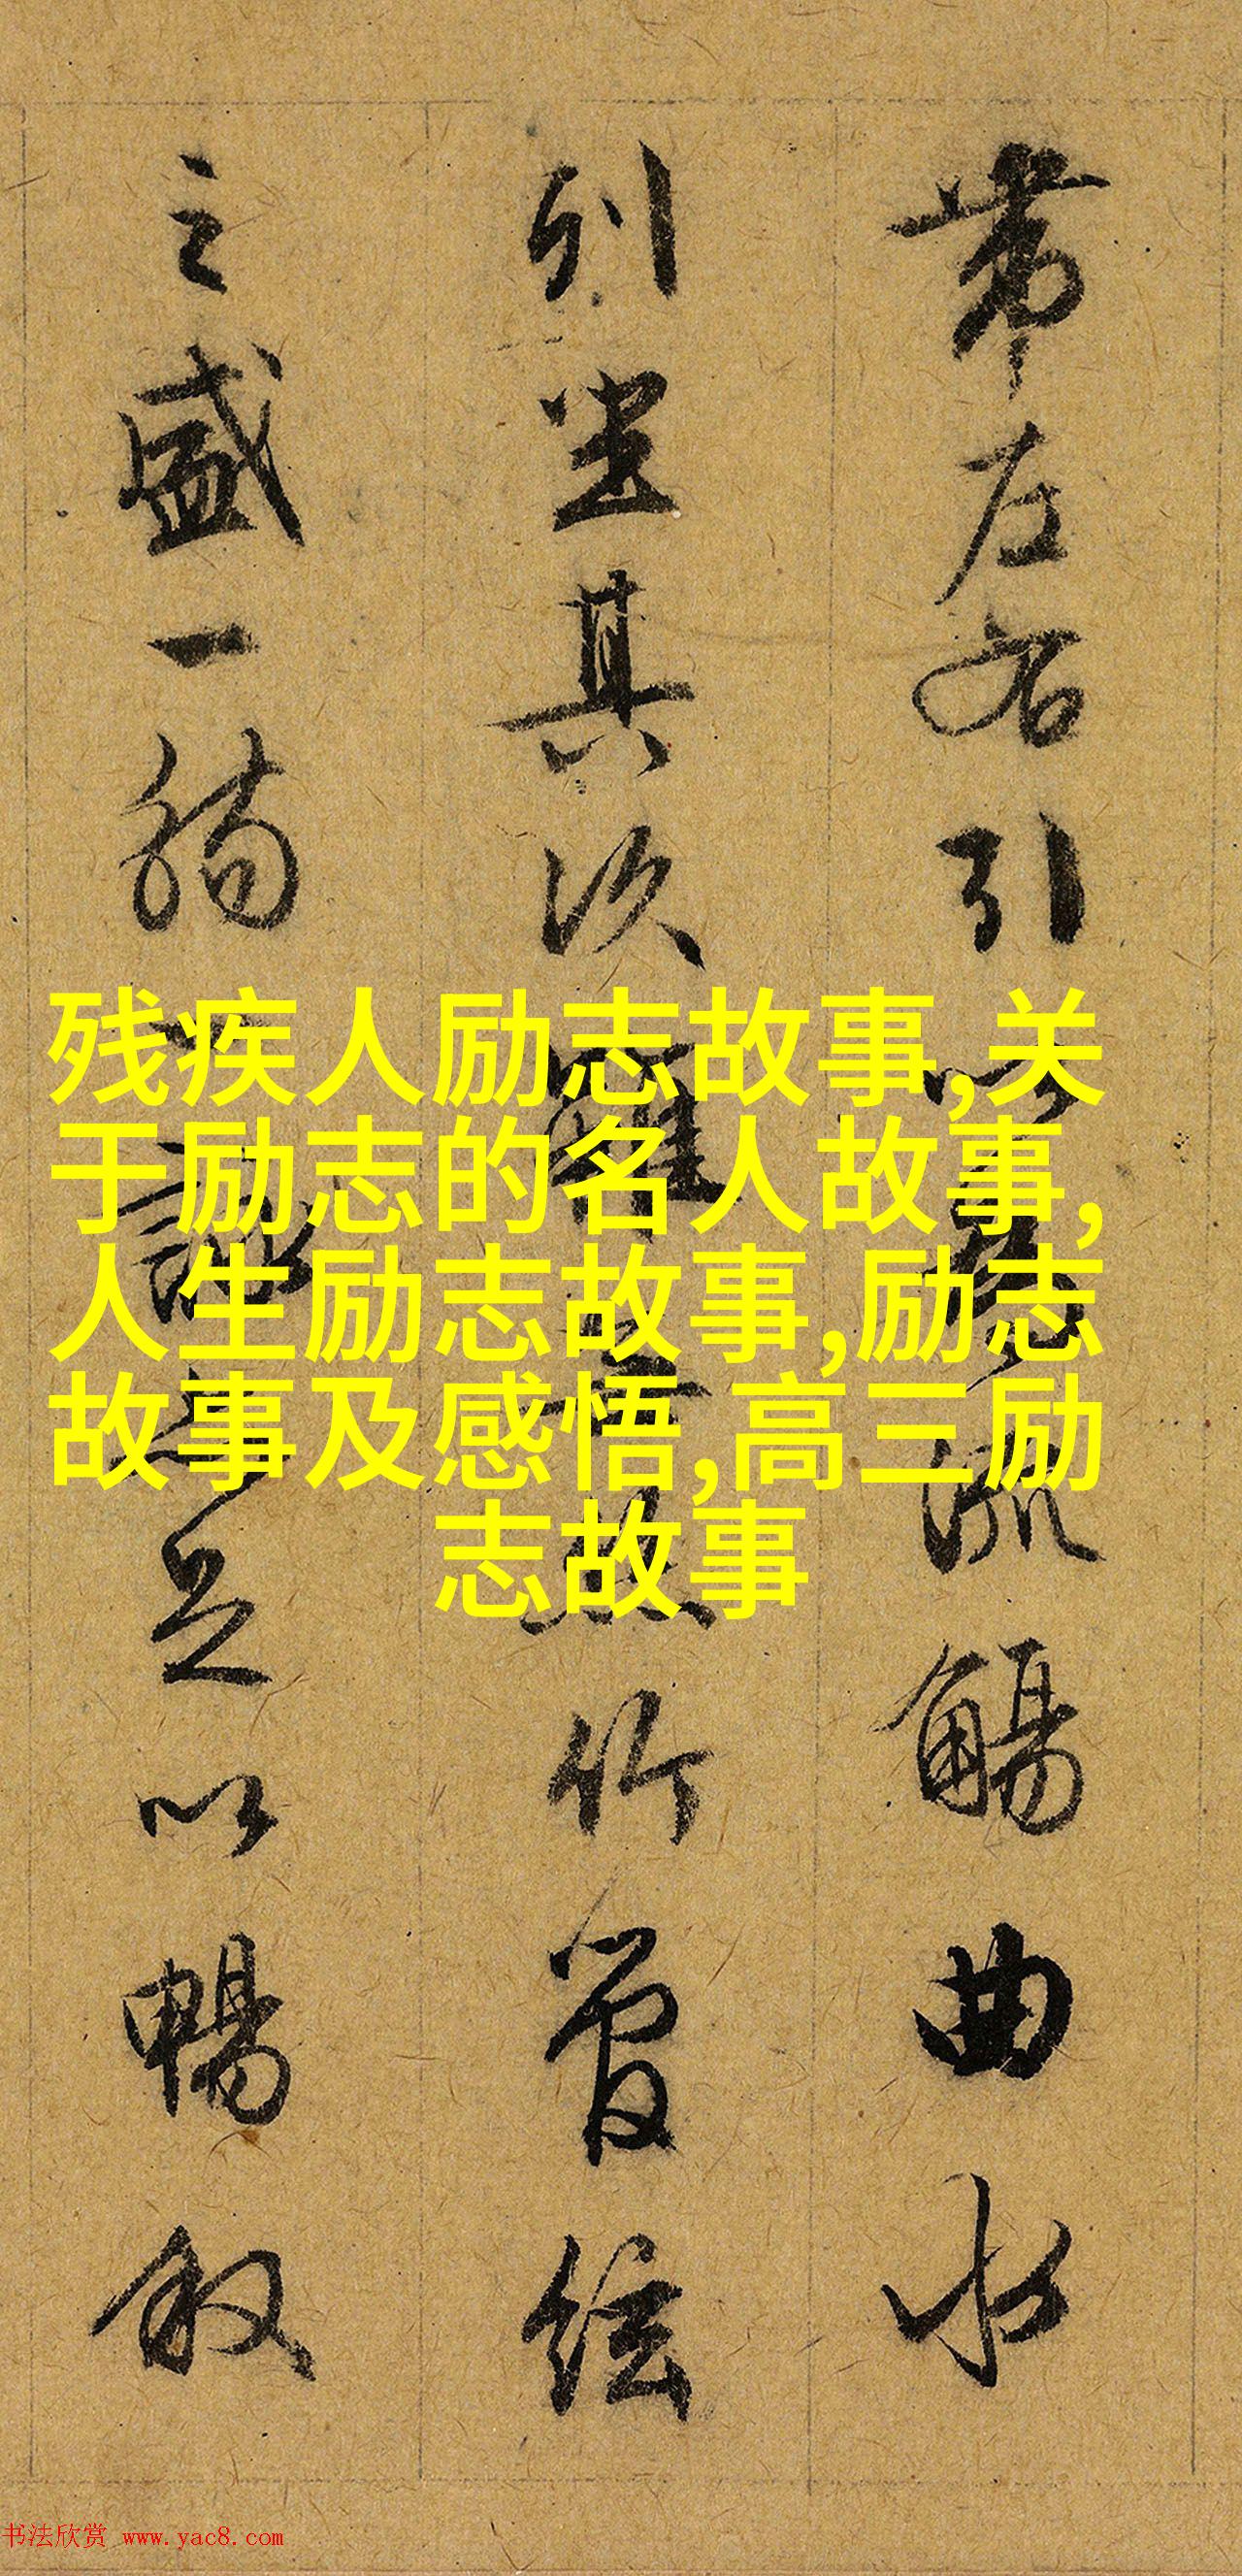 帶左右引以為流觴曲水
列坐其次雖無絲竹管絃
之盛一觴一詠亦足以暢敘
残疾人励志故事,关
于励志的名人故事,
人生励志故事,励志
故事及感悟,高三励
志故事
书法欣赏 www.yac8.com